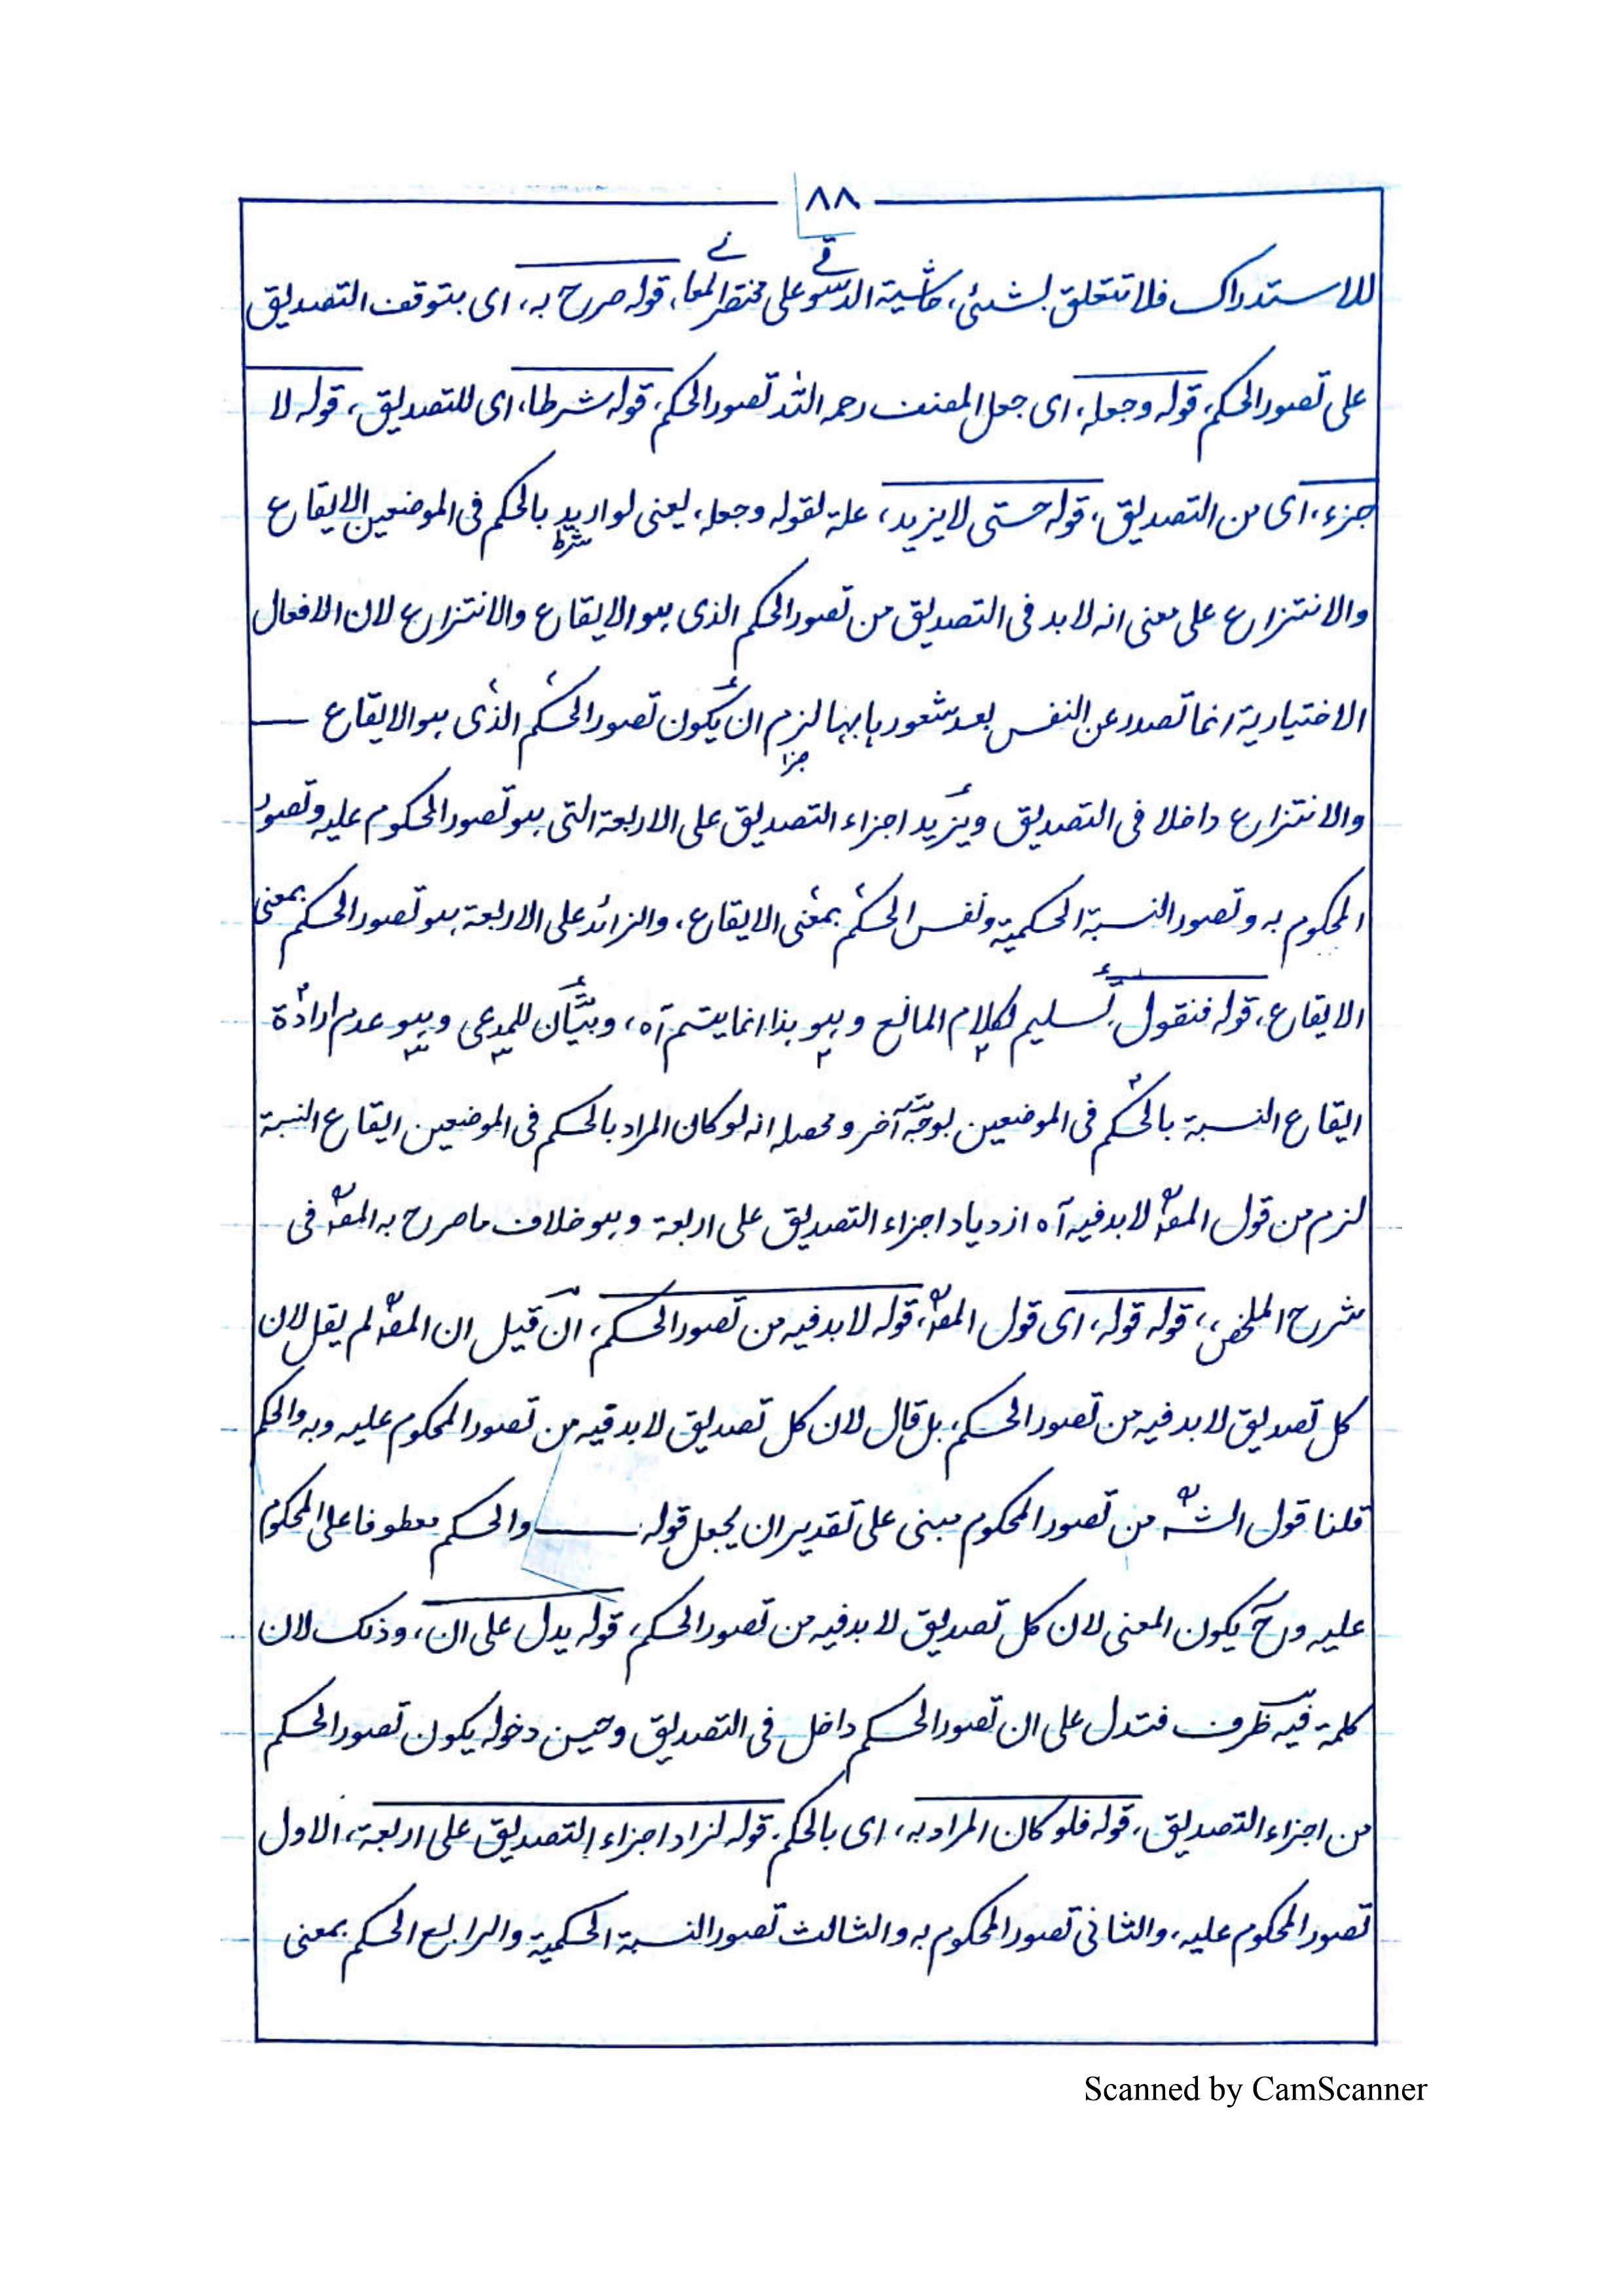 ٨٨
للاستدراك فلا تتعلق بشئ، حاشية الدسوقي على مختصر المعاني، قوله صرح به، اى بتوقف التصديق
على تصور الحكم، قوله وجعله، اى جعل المصنف رحمه الله تصور الحكم، قوله شرطا، اى للتصديق، قوله لا
جزء، اى من التصديق، قوله حتى لا يزيد، علة لقوله وجعله، يعنى لو اريد بالحكم فى الموضعين الايقاع
شرط
والانتزاع على معنى انه لا بد فى التصديق من تصور الحكم الذى هو الايقاع والانتزاع لان الافعال
الاختيارية انما تصدر عن النفس بعد شعورها بها لزم ان يكون تصور الحكم الذى هو الايقاع
جزا
والانتزاع داخلا فى التصديق ويزيد اجزاء التصديق على الاربعة التى هو تصور المحكوم عليه وتصور
المحكوم به وتصور النسبة الحكمية ونفس الحكم بمعنى الايقاع، والزائد على الاربعة هو تصور الحكم بمعنى
الايقاع، قوله فنقول، تسليم لكلام المانع وهو هذا انما يتم آه، وبيان للمدعى وهو عدم ارادة
ايقاع النسبة بالحكم فى الموضعين بوجه آخر ومحصله انه لو كان المراد بالحكم فى الموضعين ايقاع النسبة
لزم من قول المصؒ لا بد فيه آه ازدياد اجزاء التصديق على اربعة وهو خلاف ما صرح به المصؒ فى
شرح الملخص، قوله قوله، اى قول المصؒ، قوله لا بد فيه من تصور الحكم، ان قيل ان المصؒ لم يقل لان
كل تصديق لا بد فيه من تصور الحكم، بل قال لان كل تصديق لا بد فيه من تصور المحكوم عليه وبه والحكم
قلنا قول الشؒه من تصور المحكوم مبنى على تقدير ان يجعل قوله والحكم معطوفا على المحكوم
عليه وح يكون المعنى لان كل تصديق لا بد فيه من تصور الحكم، قوله يدل على ان، وذلك لان
كلمة فيه ظرف فتدل على ان تصور الحكم داخل فى التصديق وحين دخوله يكون تصور الحكم
من اجزاء التصديق، قوله فلو كان المراد به، اى بالحكم، قوله لزاد اجزاء التصديق على اربعة، الاول
تصور المحكوم عليه، والثانى تصور المحكوم به والثالث تصور النسبة الحكمية والرابع الحكم بمعنى
Scanned by CamScanner